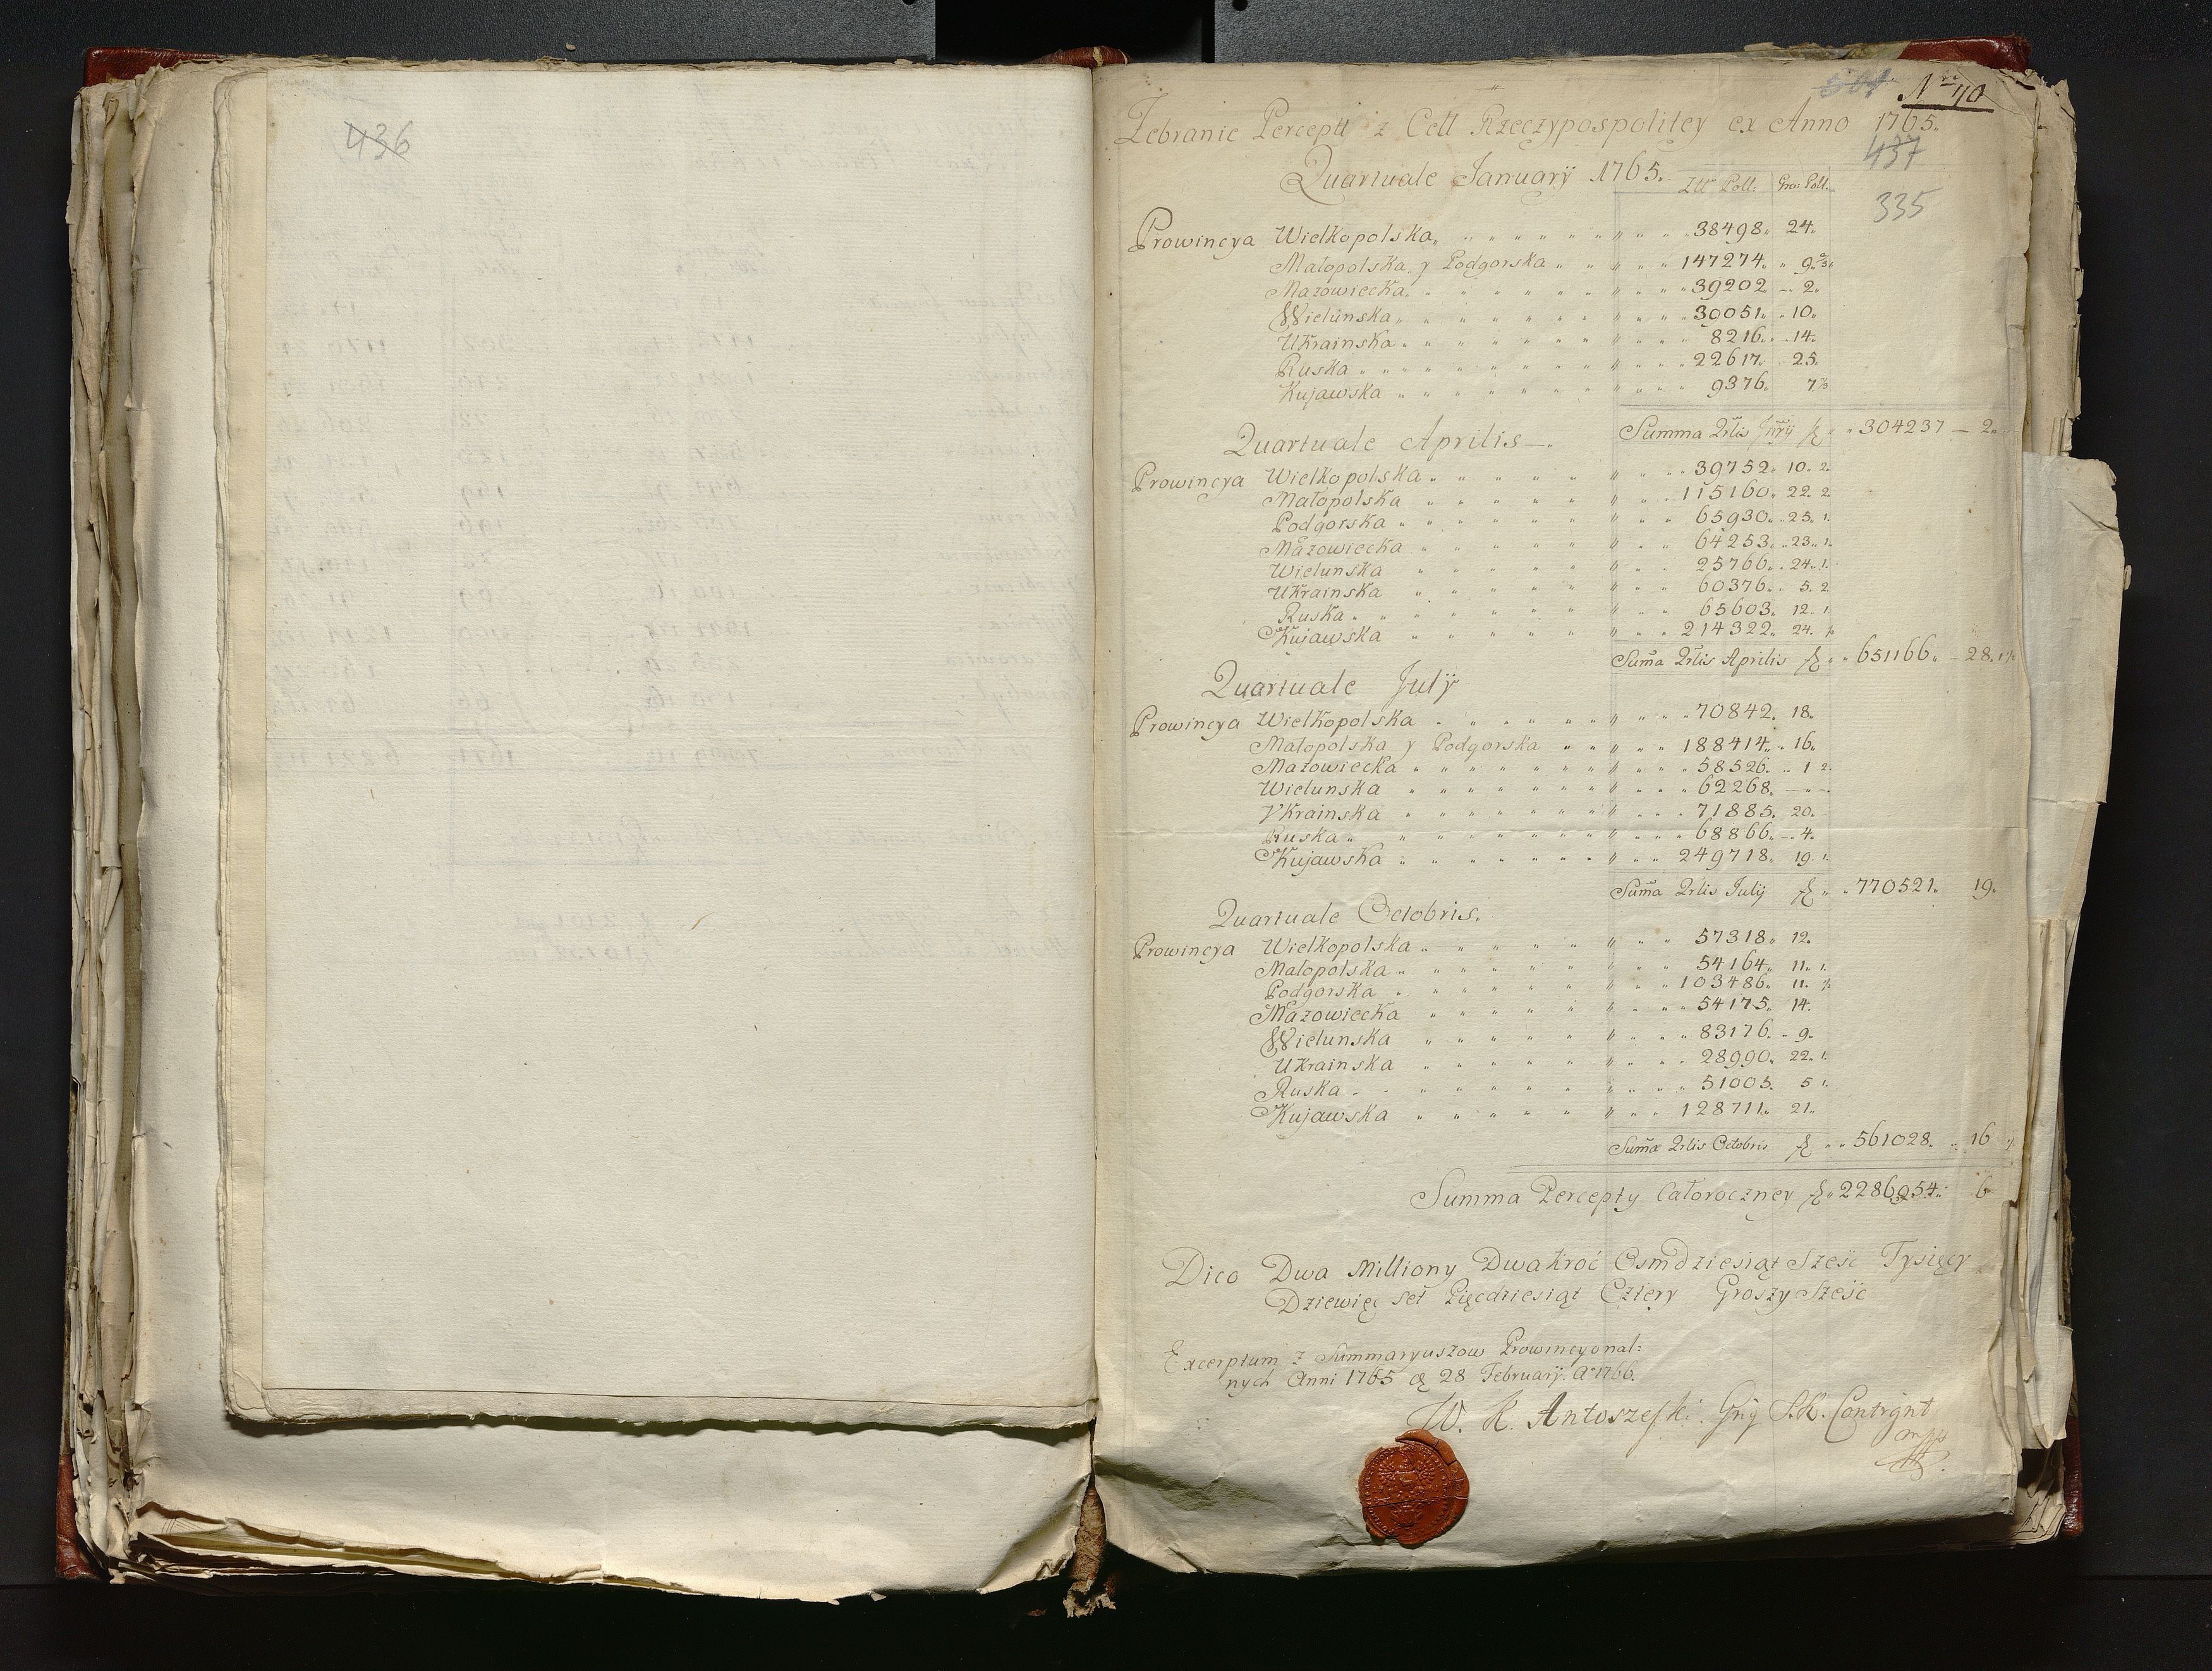 436
504 Nro 40
Zebranie Percepty z Cell Rzeczypospolitey ex Anno 1765.
437
Quartuale January 1765.
Złł Poll: Gro: Poll:
335
Prowincya Wielkopolska 38498 24
Małopolska y Podgorska 147274 9 2/3
Mazowiecka 39202 2
Wielunska 30051 10
Ukrainska 8216 14
Ruska 22617 25
Kujawska 9376 7
Summa Qrlis Jnrij 304237 2
Quartuale Aprilis
Prowincya Wielkopolska 39752 10 2
Małopolska 115160 22 2
Podgorska 65930 25 1
Mazowiecka 64253 23 1
Wielunska 25766 24 1
Ukrainska 60376 5 2
Ruska 65603 12 1
Kujawska 214322 24
Suma Qrlis Aprilis 651166 28
Quartuale July
Prowincya Wielkopolska 70842 18
Małopolska y Podgorska 188414 16
Mazowiecka 58526 1 2
Wielunska 62268
Vkrainska 71885 20
Ruska 68866 4
Kujawska 249718 19 1
Suma Qrlis July 770521 19
Quartuale Octobris.
Prowincya Wielkopolska 57318 12
Małopolska 54164 11 1
Podgorska 103486 11
Mazowiecka 54175 14
Wielunska 83176 9
Ukrainska 28990 22 1
Ruska 51005 5 1
Kujawska 128711 21
Suma Qrlis Octobris 561028 16
Summa Percepty Całoroczney 2286954 6
Dico Dwa Milliony Dwakroć Osmdziesiąt Sześć Tysięcy
Dziewięć set Pięcdziesiąt Cztery Groszy Sześć
Excerptum z Summaryuszow Prowincyonal:
nych Anni 1765 d 28 February A 1766.
W. K. Antoszefski Gnÿ S.K. Contrgnt
mpp